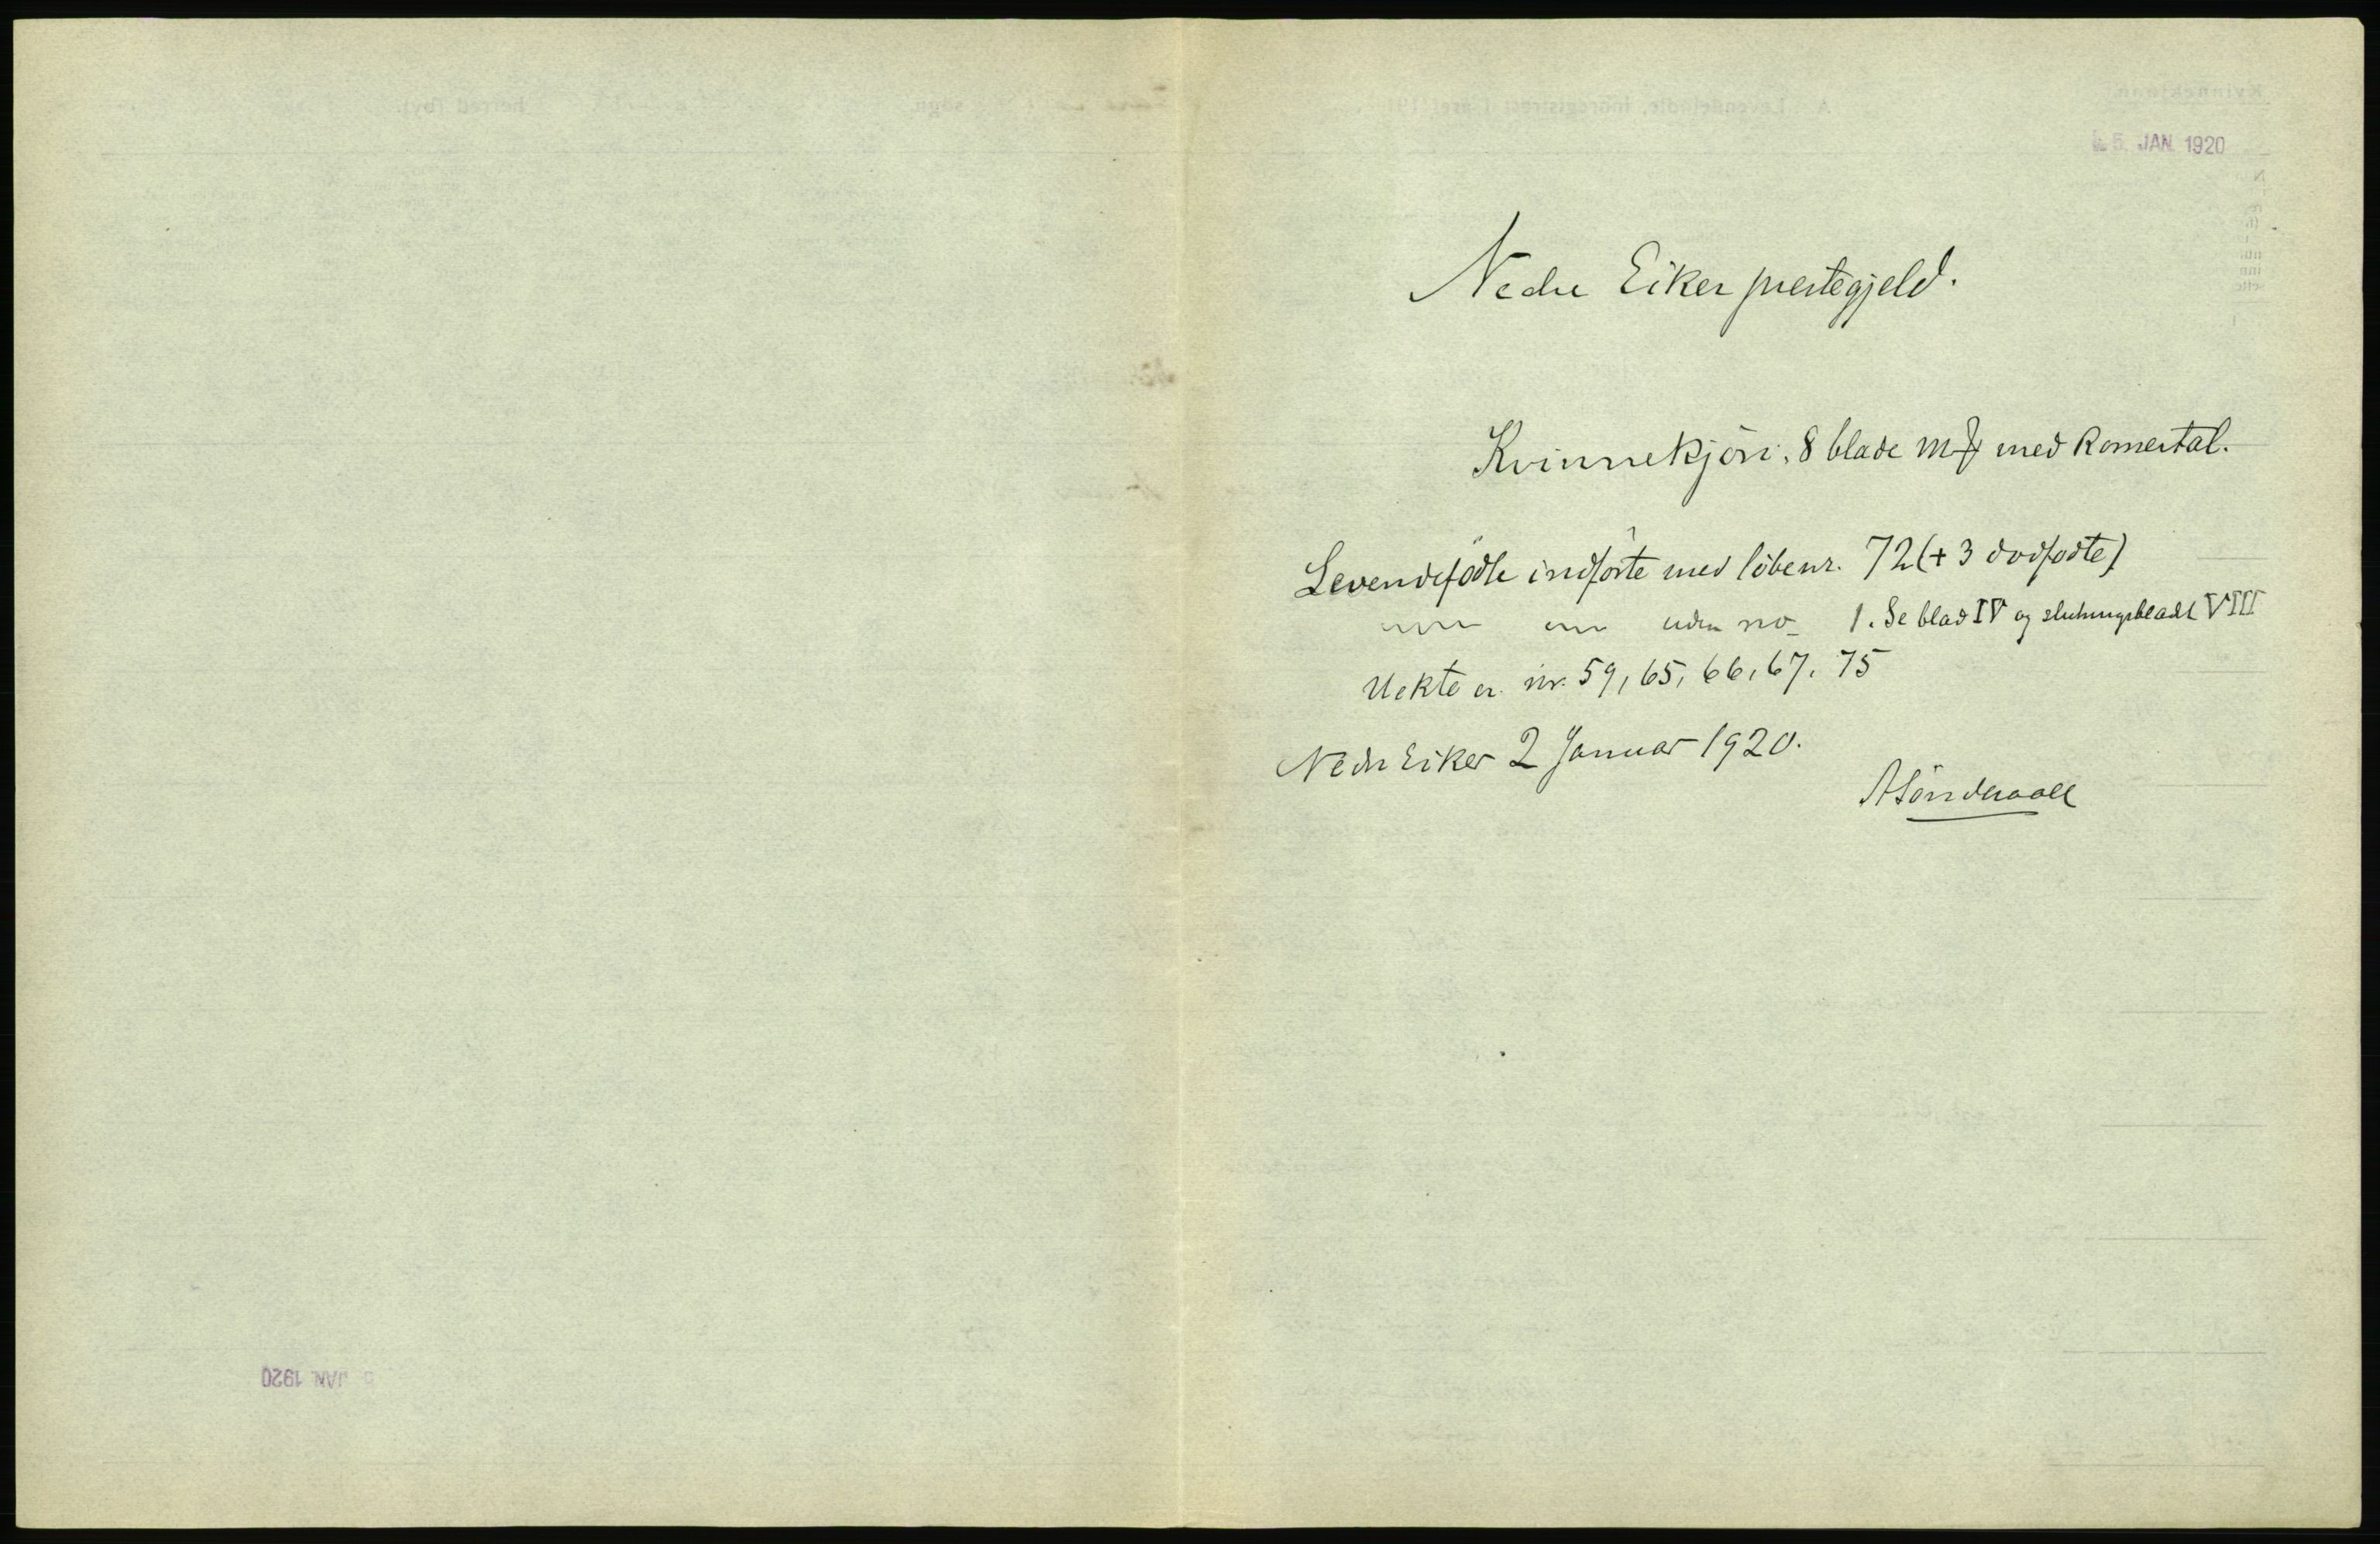 5. JAN. 1920
Nedre Eiker prestegjeld.
Kvinnekjön. 8 blade med Romertal.
Levendefödte indförte med löbenr. 72 (+ 3 dodfodte)
uden no 1. Se blad IV og slutningsbladet VIII
Uekte er nr. 59, 65, 66, 67, 75
Nedr Eiker 2 Januar 1920.
5 JAN. 1920